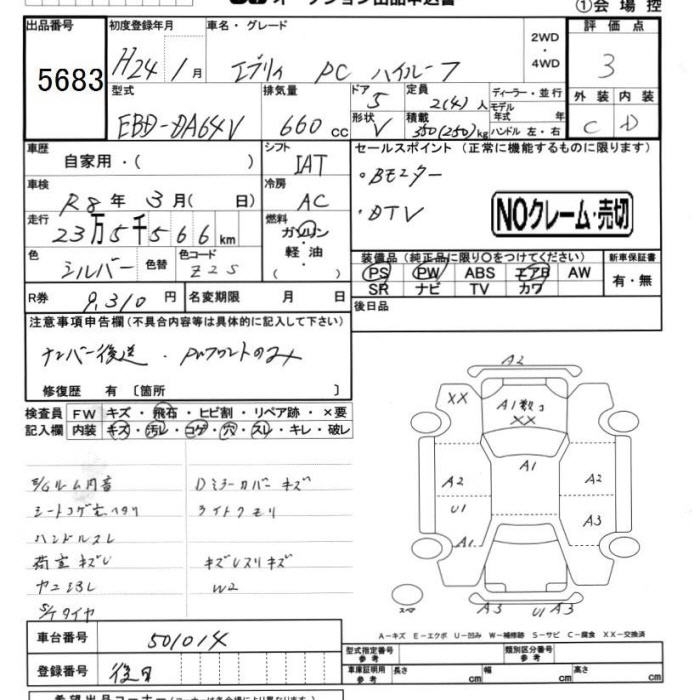 オークション出品申込書
①会場控
出品番号
5683
初度登録年月
H24年1月
車名・グレード
エブリィ PC ハイルーフ
2WD
・
4WD
評価点
3
型式
EBD-DA64V
排気量
660cc
ドア
5
形状
V
定員
2(4)人
積載
350(250)kg
ディーラー・並行
モデル
年式 年
ハンドル 左・右
外装 内装
C D
車歴
自家用・( )
シフト
IAT
車検
R8年3月( 日)
冷房
AC
走行
23万5千566km
燃料
ガソリン
軽油
( )
色
シルバー
色替
色コード
Z2S
R券
9,310円
名変期限 月 日
セールスポイント(正常に機能するものに限ります)
・Bモニター
・DTV
NOクレーム・売切
装備品(純正品に限り○をつけてください)
新車保証書
PS PW ABS エアB AW
SR ナビ TV カワ
有・無
後日品
注意事項申告欄(不具合内容等は具体的に記入して下さい)
ナンバー後送・PWフロントのみ
修復歴 有〔箇所 〕
検査員 FW キズ・飛石・ヒビ割・リペア跡・×要
記入欄 内装 キズ・汚レ・コゲ・穴・スレ・キレ・破レ
シートコゲ穴ヘタリ
ハンドルスレ
荷室キズU
S/Tタイヤ
Dミラーカバーキズ
ライトクモリ
キズUスリキズ
W2
A2
XX
A1数コ
XX
A1
A2
U1
A1
A2
A3
A3
U1 A3
スペア
A-キズ E-エクボ U-凹み W-補修跡 S-サビ C-腐食 XX-交換済
車台番号
501014
登録番号
後日
型式指定番号
参考
類別区分番号
参考
車庫証明用
参考
長さ cm
幅 cm
高さ cm